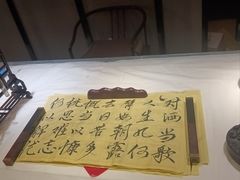 对酒当歌
人生几何
譬如朝露
去日苦多
慨当以慷
忧思难忘
何以解忧